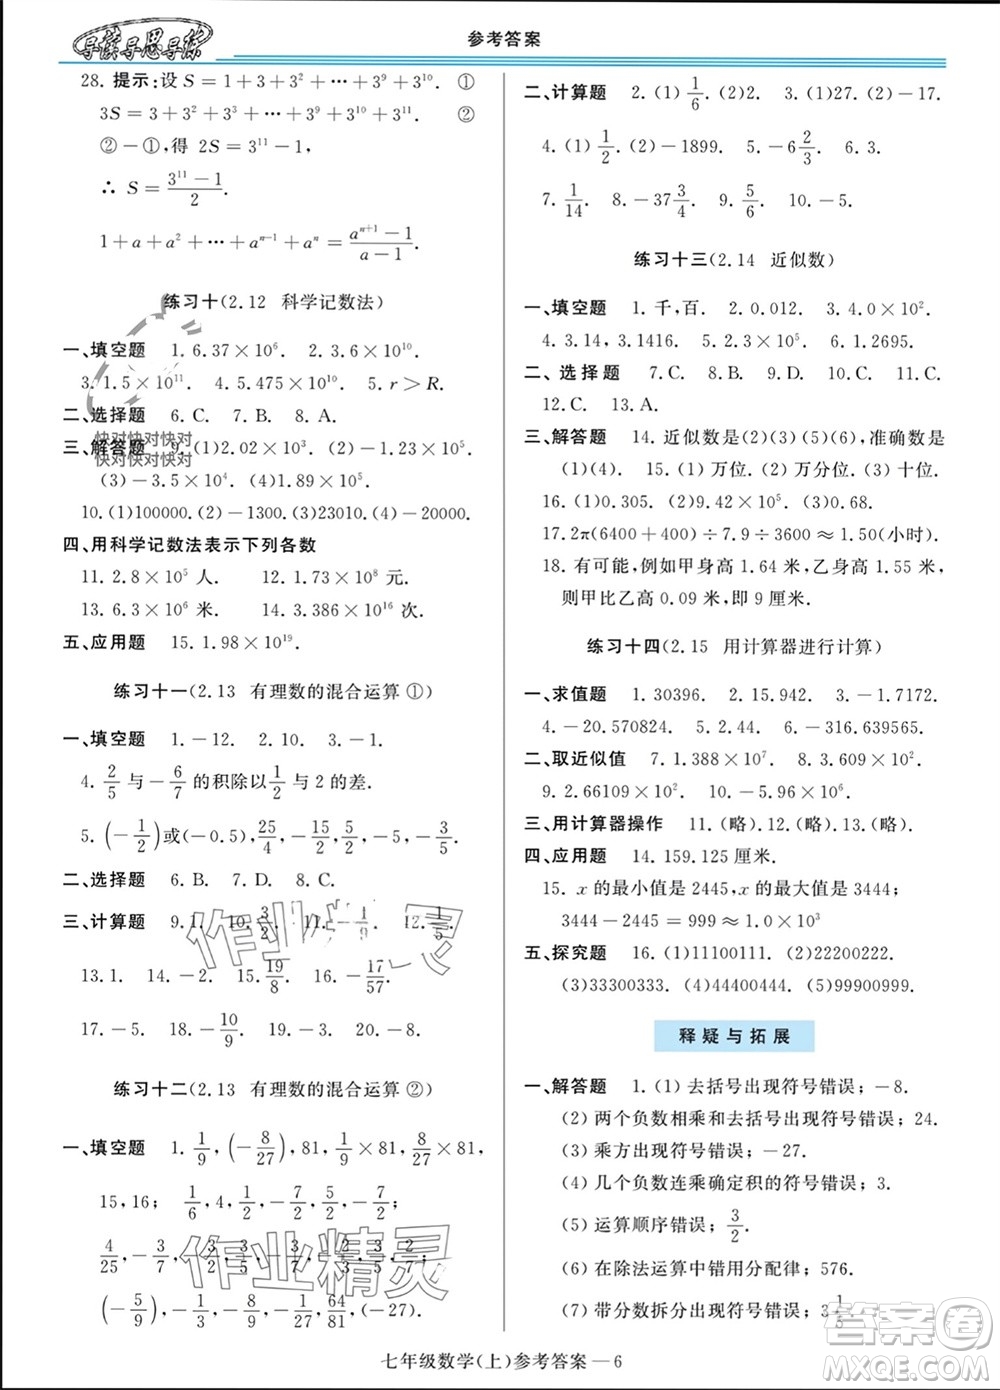 导读导思导练
参考答案
28. 提示:设 S=1+3+3²+…+3⁹+3¹⁰. ①
3S=3+3²+3³+…+3¹⁰+3¹¹. ②
②-①,得 2S=3¹¹-1,
∴ S=(3¹¹-1)/2.
1+a+a²+…+aⁿ⁻¹+aⁿ=(aⁿ⁺¹-1)/(a-1).
练习十(2.12 科学记数法)
一、填空题 1. 6.37×10⁶. 2. 3.6×10⁸.
3. 1.5×10¹¹. 4. 5.475×10⁵. 5. r>R.
二、选择题 6. C. 7. C. 8. A.
三、解答题 9. (1)2.02×10³. (2)-1.23×10⁵.
(3)-3.5×10⁴. (4)1.89×10⁵.
10. (1)100000. (2)-1300. (3)23010. (4)-20000.
四、用科学记数法表示下列各数
11. 2.8×10⁵ 人. 12. 1.73×10⁸ 元.
13. 6.3×10⁶ 米. 14. 3.386×10¹⁶ 次.
五、应用题 15. 1.98×10¹⁹.
练习十一(2.13 有理数的混合运算 ①)
一、填空题 1. -12. 2. 10. 3. -1.
4. 2/5 与 -6/7 的积除以 1/2 与 2 的差.
5. (-1/2)或(-0.5), 25/4, -15/2, 5/2, -5, -3/5.
二、选择题 6. B. 7. D. 8. D.
三、计算题 9. 1. 10. 3/2. 11. -1/9. 12. 1/5.
13. 1. 14. -2. 15. 19/8. 16. -17/57.
17. -5. 18. -10/9. 19. -3. 20. -5.
练习十二(2.13 有理数的混合运算 ②)
一、填空题 1. 1/9, (-8/27), 81, 1/9×81, -8/27×81,
15, 16;
4/25,
(-5/9), -1/3,
二、计算题 2. (1)1/6. (2)2. 3. (1)1. (2)-17.
4. (1)1/2. (2)-1899. 5. -6 2/3. 6. 3.
7. 1/14. 8. -37 3/4. 9. 5/6. 10. -5.
练习十三(2.14 近似数)
一、填空题 1. 千,百. 2. 0.012. 3. 4.0×10².
4. 3.14, 3.1416. 5. 1.8×10⁵. 6. 1.2695.
二、选择题 7. C. 8. D. 9. A. 10. C. 11. C.
12. C. 13. A.
三、解答题 14. 近似数是(2)(3)(5)(6),准确数是
(1)(4). 15. (1)万位. (2)万分位. (3)十位.
16. (1)0.305. (2)9.42×10⁵. (3)0.68.
17. 2π(6400+400)÷7.9÷3600≈1.50(小时).
18. 有可能,例如甲身高 1.64 米,乙身高 1.55 米,
则甲比乙高 0.09 米,即 9 厘米.
练习十四(2.15 用计算器进行计算)
一、求值题 1. 30396. 2. 15.942. 3. -1.7172.
4. -20.570824. 5. 2.44. 6. -316.639565.
二、取近似值 7. 1.388×10⁷. 8. 1.153×10⁵.
9. 2.66109×10⁴. 10. -5.96×10⁶.
三、用计算器操作 11. (略). 12. (略). 13. (略).
四、应用题 14. 159.125 厘米.
15. x 的最小值是 2445, x 的最大值是 3444;
3444-2445=999≈1.0×10³
五、探究题 16. (1)2222. (2)22200222.
(3)33300333. (4)44400444. (5)999000.
释疑与拓展
一、解答题 1. (1) 去括号出现符号错误; -8.
(2) 两个负数相乘和去括号出现符号错误; 24.
(3) 乘方出现符号错误; -27.
(4) 几个负数连乘确定积的符号错误; 6.
(5) 运算顺序错误; 3/2.
(6) 在除法运算中错用分配律; 576.
(7) 带分数拆分出现符号错误; 3 1/5.
七年级数学(上)参考答案—6
快对快对快对
快对快对快对
作业精灵
作业精灵
答案圈
MXQE.COM